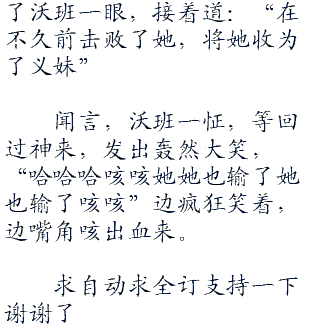 了沃班一眼，接着道：“在
不久前击败了她，将她收为
了义妹”
闻言，沃班一怔，等回
过神来，发出轰然大笑，
“哈哈哈咳咳她她也输了她
也输了咳咳”边疯狂笑着，
边嘴角咳出血来。
求自动求全订支持一下
谢谢了